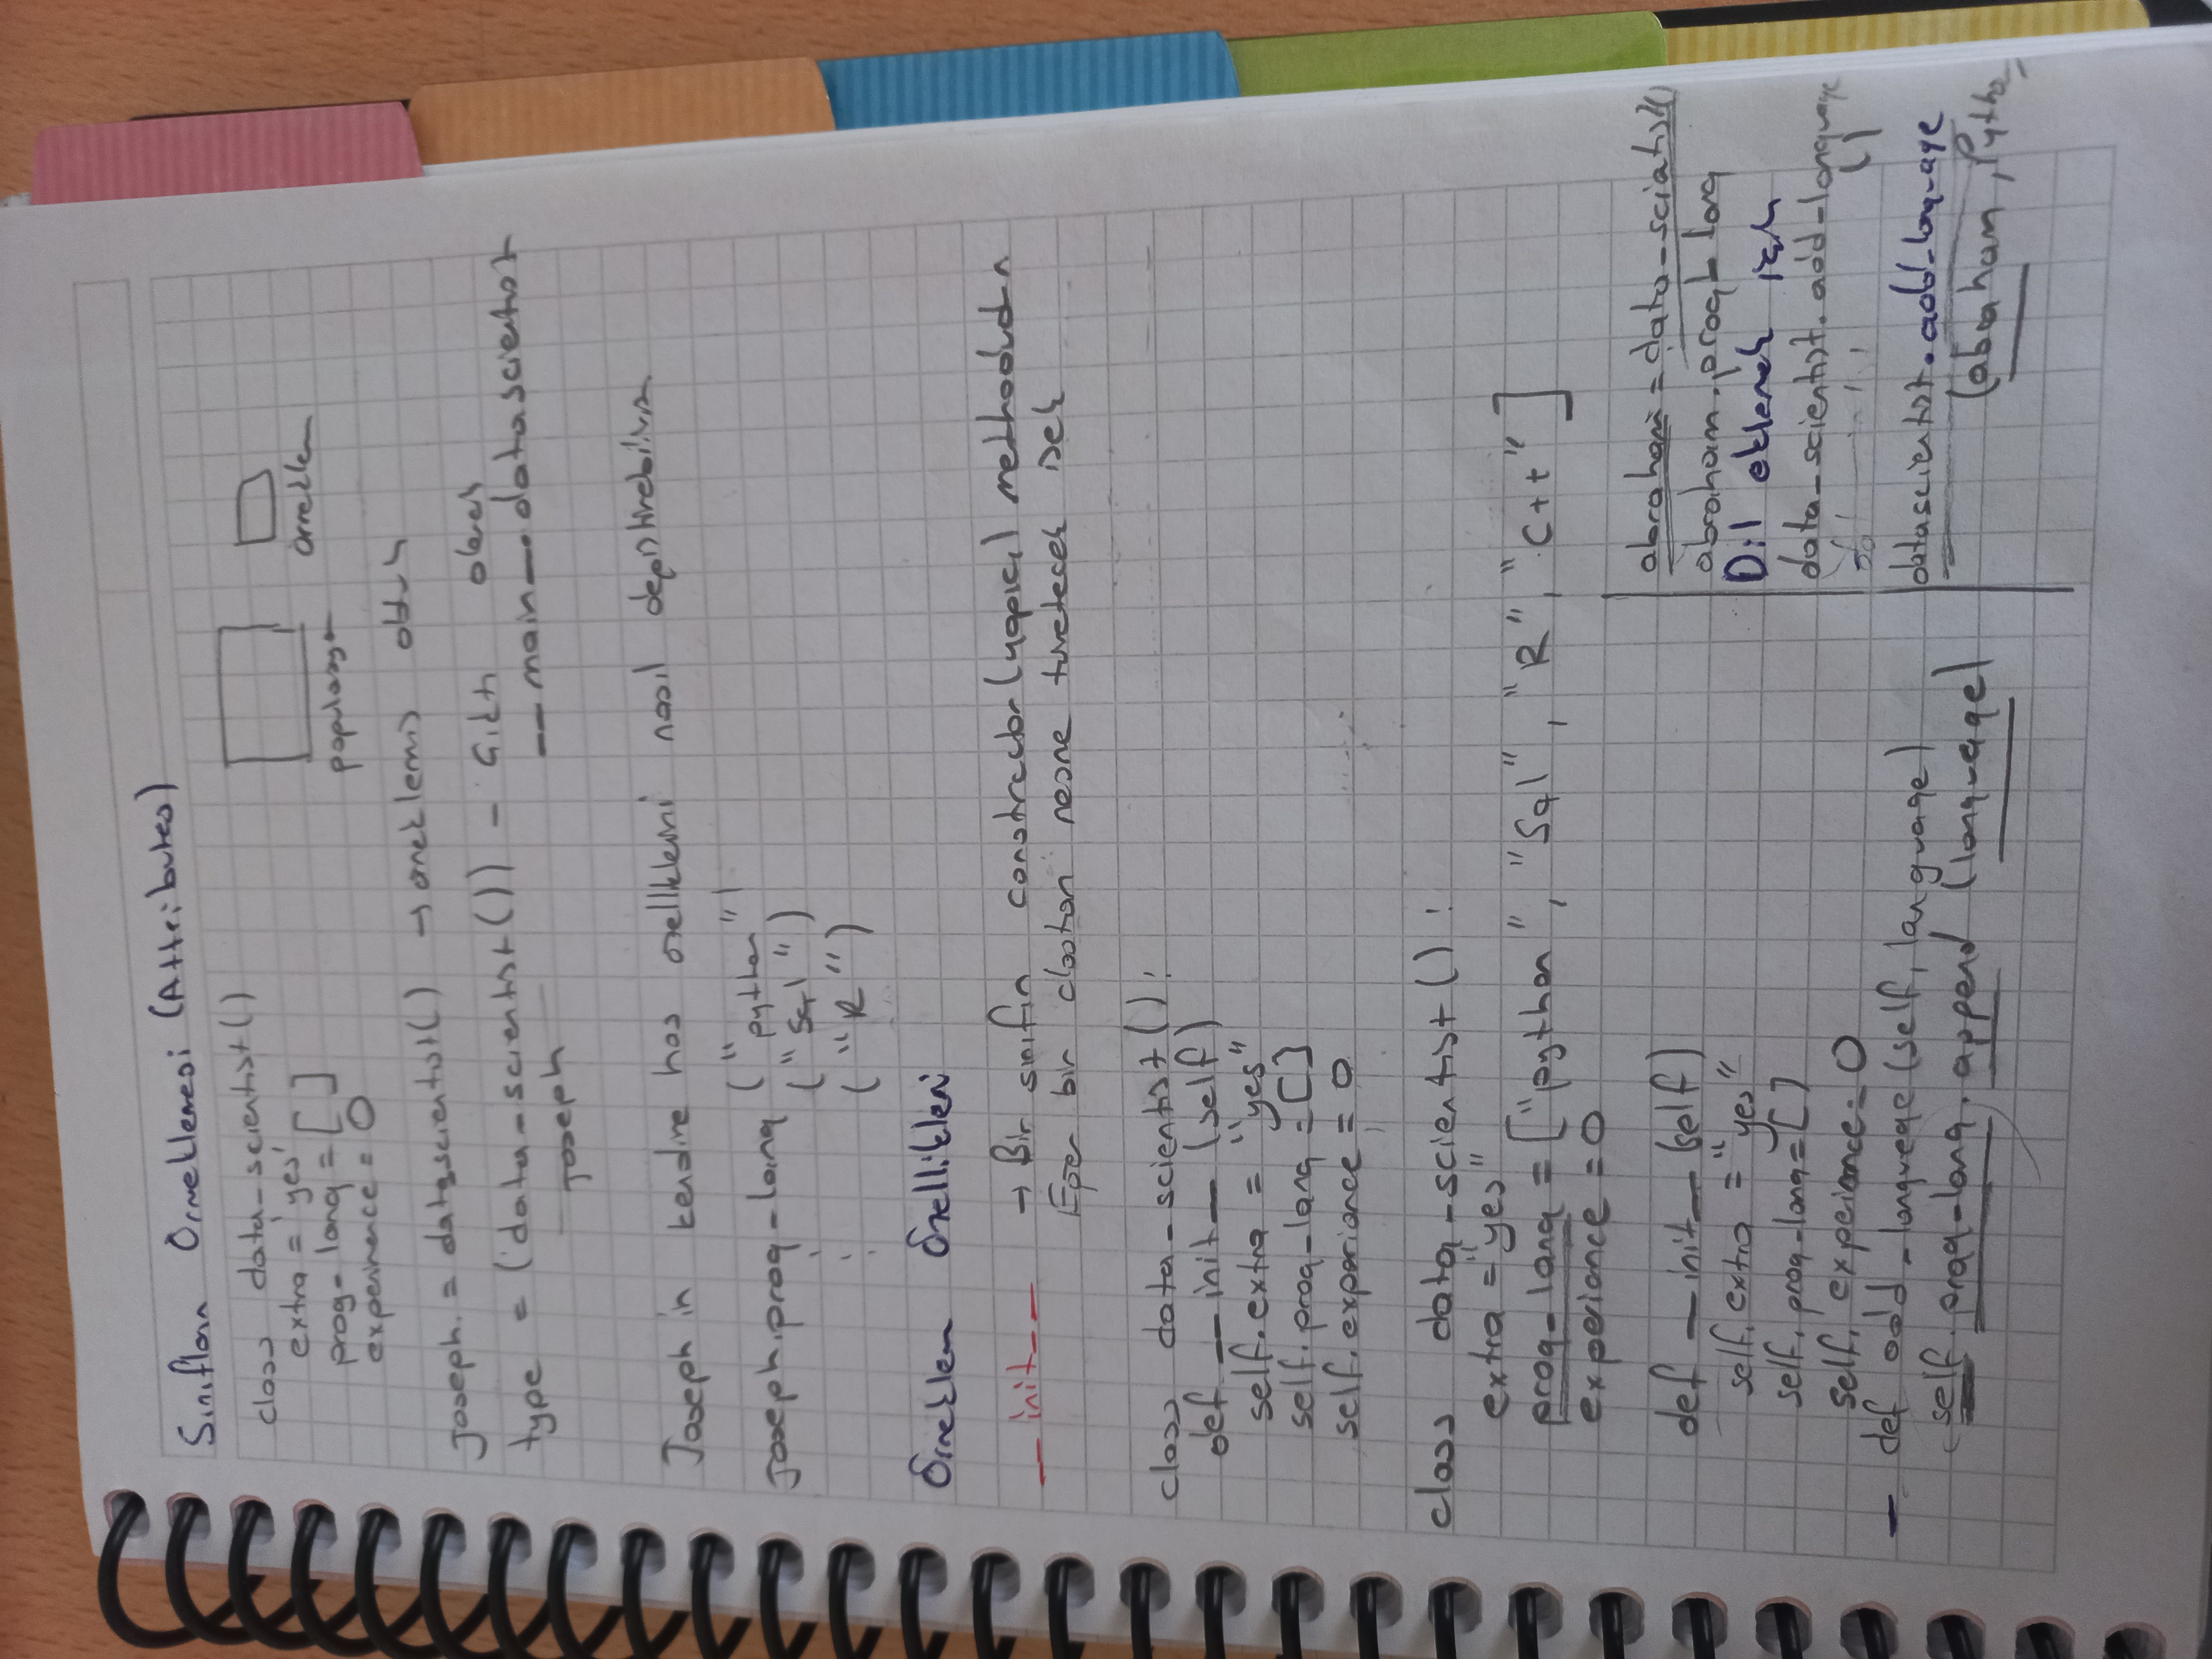 Sınıfların Örneklemesi (Attributes)
class data_scientist()
extra = 'yes'
prog_lang = []
experinence = 0
populasyon
örneklem
Joseph = datascientist() → örneklemiş olduk
type = (data_scientist()) - Çıktı olarak
Joseph
__main__.datascientist
Joseph in kendine has özelliklerini nasıl değiştirebiliriz
Joseph.prog_lang ("python")
("Sql")
("R")
Örneklem Özellikleri
__init__ → Bir sınıfın constractor (yapıcı) methodudur
Eğer bir classtan nesne türetecek isek
class data_scientist():
def __init__ (self)
self.extra = "yes"
self.prog_lang = []
self.experiance = 0
class data_scientist():
extra = "yes"
prog_lang = ["python", "Sql", "R", "C++"]
experiance = 0
def __init__ (self)
self.extra = "yes"
self.prog_lang = []
self.expeiance = 0
- def add_languege (self, language)
self.prog_lang.append (language)
abraham = data_sciatist()
abraham.prog_lang
Dil eklemek için
data_scientist.add_language
()
datascientist.add_language
(abraham, Python